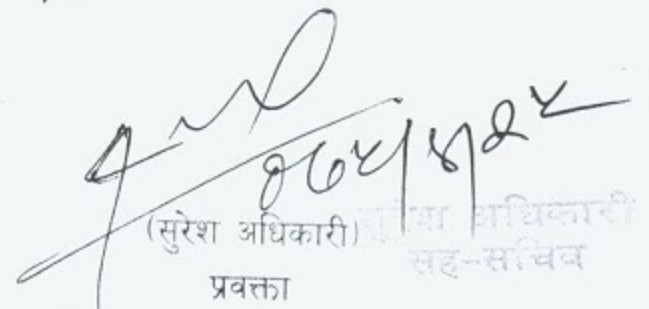 (सुरेश अधिकारी)
प्रवक्ता
सुरेश अधिकारी
सह-सचिव